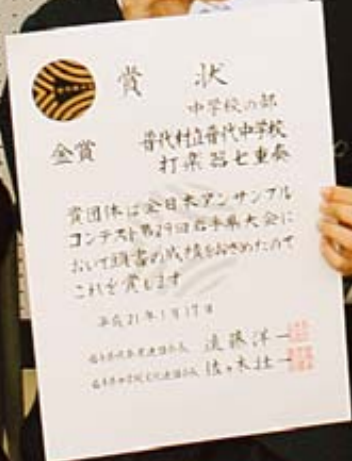 賞状
中学校の部
金賞 普代村立普代中学校
打楽器七重奏
貴団体は全日本アンサンブル
コンテスト第29回岩手県大会に
おいて頭書の成績をおさめたので
これを賞します
平成21年1月17日
遠藤洋一
佐々木壮一